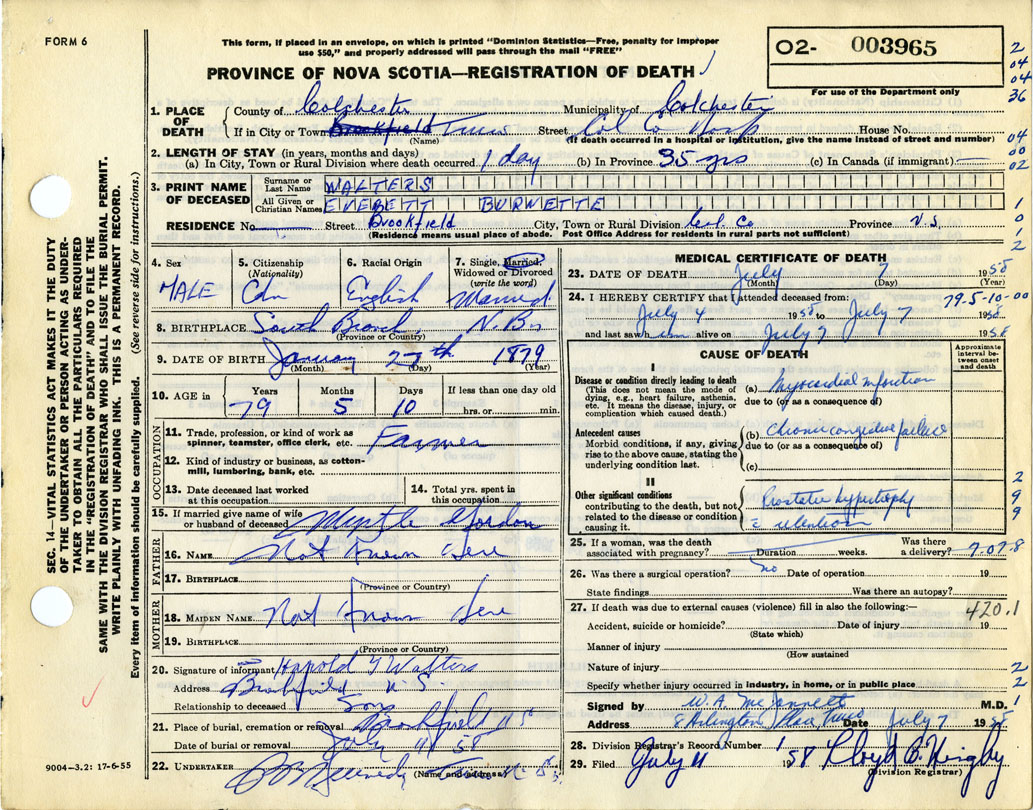 FORM 6
This form, if placed in an envelope, on which is printed "Dominion Statistics—Free, penalty for improper
use $50," and properly addressed will pass through the mail "FREE"
PROVINCE OF NOVA SCOTIA—REGISTRATION OF DEATH
02- 003965
For use of the Department only
2
04
04
36
04
00
02
1
0
1
2
SEC. 14—VITAL STATISTICS ACT MAKES IT THE DUTY
OF THE UNDERTAKER OR PERSON ACTING AS UNDER-
TAKER TO OBTAIN ALL THE PARTICULARS REQUIRED
IN THE "REGISTRATION OF DEATH" AND TO FILE THE
SAME WITH THE DIVISION REGISTRAR WHO SHALL ISSUE THE BURIAL PERMIT.
WRITE PLAINLY WITH UNFADING INK. THIS IS A PERMANENT RECORD.
Every item of information should be carefully supplied. (See reverse side for instructions.)
1. PLACE OF DEATH
County of Colchester Municipality of Colchester
If in City or Town Brookfield Truro Street Col Co Hosp House No.
(Name) (If death occurred in a hospital or institution, give the name instead of street and number)
2. LENGTH OF STAY (in years, months and days)
(a) In City, Town or Rural Division where death occurred 1 day (b) In Province 35 yrs (c) In Canada (if immigrant) —
3. PRINT NAME OF DECEASED
Surname or Last Name WALTERS
All Given or Christian Names EVERETT BURNETTE
RESIDENCE No. Street Brookfield City, Town or Rural Division Col. Co Province N.S.
(Residence means usual place of abode. Post Office Address for residents in rural parts not sufficient)
4. Sex
MALE
5. Citizenship (Nationality)
Cdn
6. Racial Origin
English
7. Single, Married, Widowed or Divorced (write the word)
Married
8. BIRTHPLACE South Branch, N.B.
(Province or Country)
9. DATE OF BIRTH January 27th 1879
(Month) (Day) (Year)
10. AGE in Years Months Days If less than one day old
79 5 10 hrs. or min.
OCCUPATION
11. Trade, profession, or kind of work as spinner, teamster, office clerk, etc. Farmer
12. Kind of industry or business, as cotton-mill, lumbering, bank, etc.
13. Date deceased last worked at this occupation
14. Total yrs. spent in this occupation
15. If married give name of wife or husband of deceased Myrtle Gordon
FATHER
16. NAME Not Known Here
17. BIRTHPLACE
(Province or Country)
MOTHER
18. MAIDEN NAME Not Known Here
19. BIRTHPLACE
(Province or Country)
20. Signature of informant Harold Walters
Address Brookfield N.S.
Relationship to deceased Son
21. Place of burial, cremation or removal Brookfield N S
Date of burial or removal July 9 58
22. UNDERTAKER Kennedy
(Name and address)
9004—3.2: 17-6-55
MEDICAL CERTIFICATE OF DEATH
23. DATE OF DEATH July 7 1958
(Month) (Day) (Year)
24. I HEREBY CERTIFY that I attended deceased from: 79.5-10-00
July 4 1958 to July 7 1958
and last saw him alive on July 7 1958
CAUSE OF DEATH
Approximate interval between onset and death
I
Disease or condition directly leading to death
(This does not mean the mode of dying, e.g., heart failure, asthenia, etc. It means the disease, injury, or complication which caused death.)
(a) Myocardial infarction
due to (or as a consequence of)
Antecedent causes
Morbid conditions, if any, giving rise to the above cause, stating the underlying condition last.
(b) Chronic congestive failure
due to (or as a consequence of)
(c)
II
Other significant conditions
contributing to the death, but not related to the disease or condition causing it.
Prostatic hypertrophy
c̄ retention
2
9
9
25. If a woman, was the death associated with pregnancy? Duration weeks. Was there a delivery?
26. Was there a surgical operation? no Date of operation 19
State findings Was there an autopsy?
27. If death was due to external causes (violence) fill in also the following:— 420.1
Accident, suicide or homicide? Date of injury 19
(State which)
Manner of injury
(How sustained
Nature of injury 2
Specify whether injury occurred in industry, in home, or in public place 2
Signed by M.D. 1
Address Arlington Place Truro Date July 7 1958
28. Division Registrar's Record Number
29. Filed July 11 1958 Lloyd
(Division Registrar)